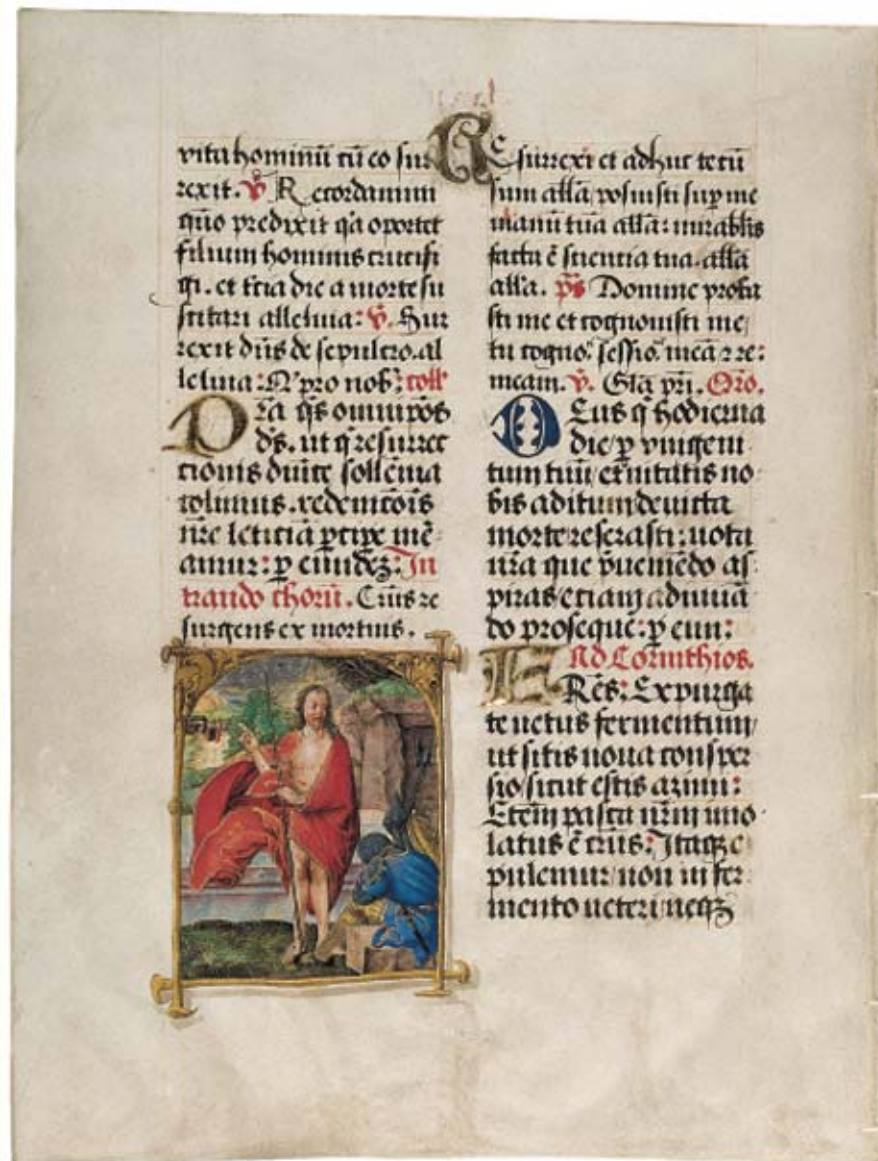 vita hominū cū eo sur
rexit. V̄ Recordamini
quō predixit q̄a oportet
filium hominis crucifi
gi. et t̄cia die a morte su
scitari alleluia: V̄. Sur
rexit dn̄s de sepulcro. al
leluia: N̄ pro nob̄: coll̄
Pr̄a q̄s omnip̄os
ds̄. ut q̄ resurrec
tionis dn̄ice sollēnia
colimus. redemcōis
nr̄e leticiā p̄cipe mē
amur: p̄ eundeꝫ: In
trando chorū. Cr̄us re
surgens ex mortuis.
Resurrexi et adhuc tecū
sum all̄a, posuisti sup̄ me
manū tuā all̄a: mirabl̄is
facta ē scientia tua. all̄a
all̄a. p̄s Domine proba
sti me et cognouisti me,
tu cogno. sessio. meā ⁊ re:
meam. V̄. Gl̄a pr̄i. Or̄o.
Deus q̄ hodierna
die/p̄ vnigeni
tum tuū et̄nitatis no
bis aditum deuicta
morte reserasti: uota
nr̄a que p̄ueniēdo as
piras/etiam adiuuā
do proseque: p̄ eun:
Ad Corinthios.
FRēs: Expurga
te uetus fermentum/
ut sitis noua consper
sio/sicut estis azimi:
Eteīm pasca nr̄m imo
latus ē cr̄us: Itaqꝫ e
pulemur/non in fer
mento ueteri/neqꝫ